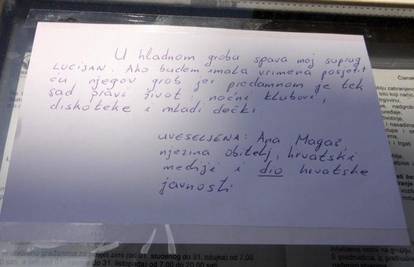 U hladnom grobu spava moj suprug
LUCIJAN. Ako budem imala vrimena posjetit
ću njegov grob jer predamnom je tek
sad pravi život, noćni klubovi,
diskoteke i mladi dečki
UVESELJENA: Ana Magaš,
njezina obitelj, hrvatski
mediji i dio hrvatske
javnosti